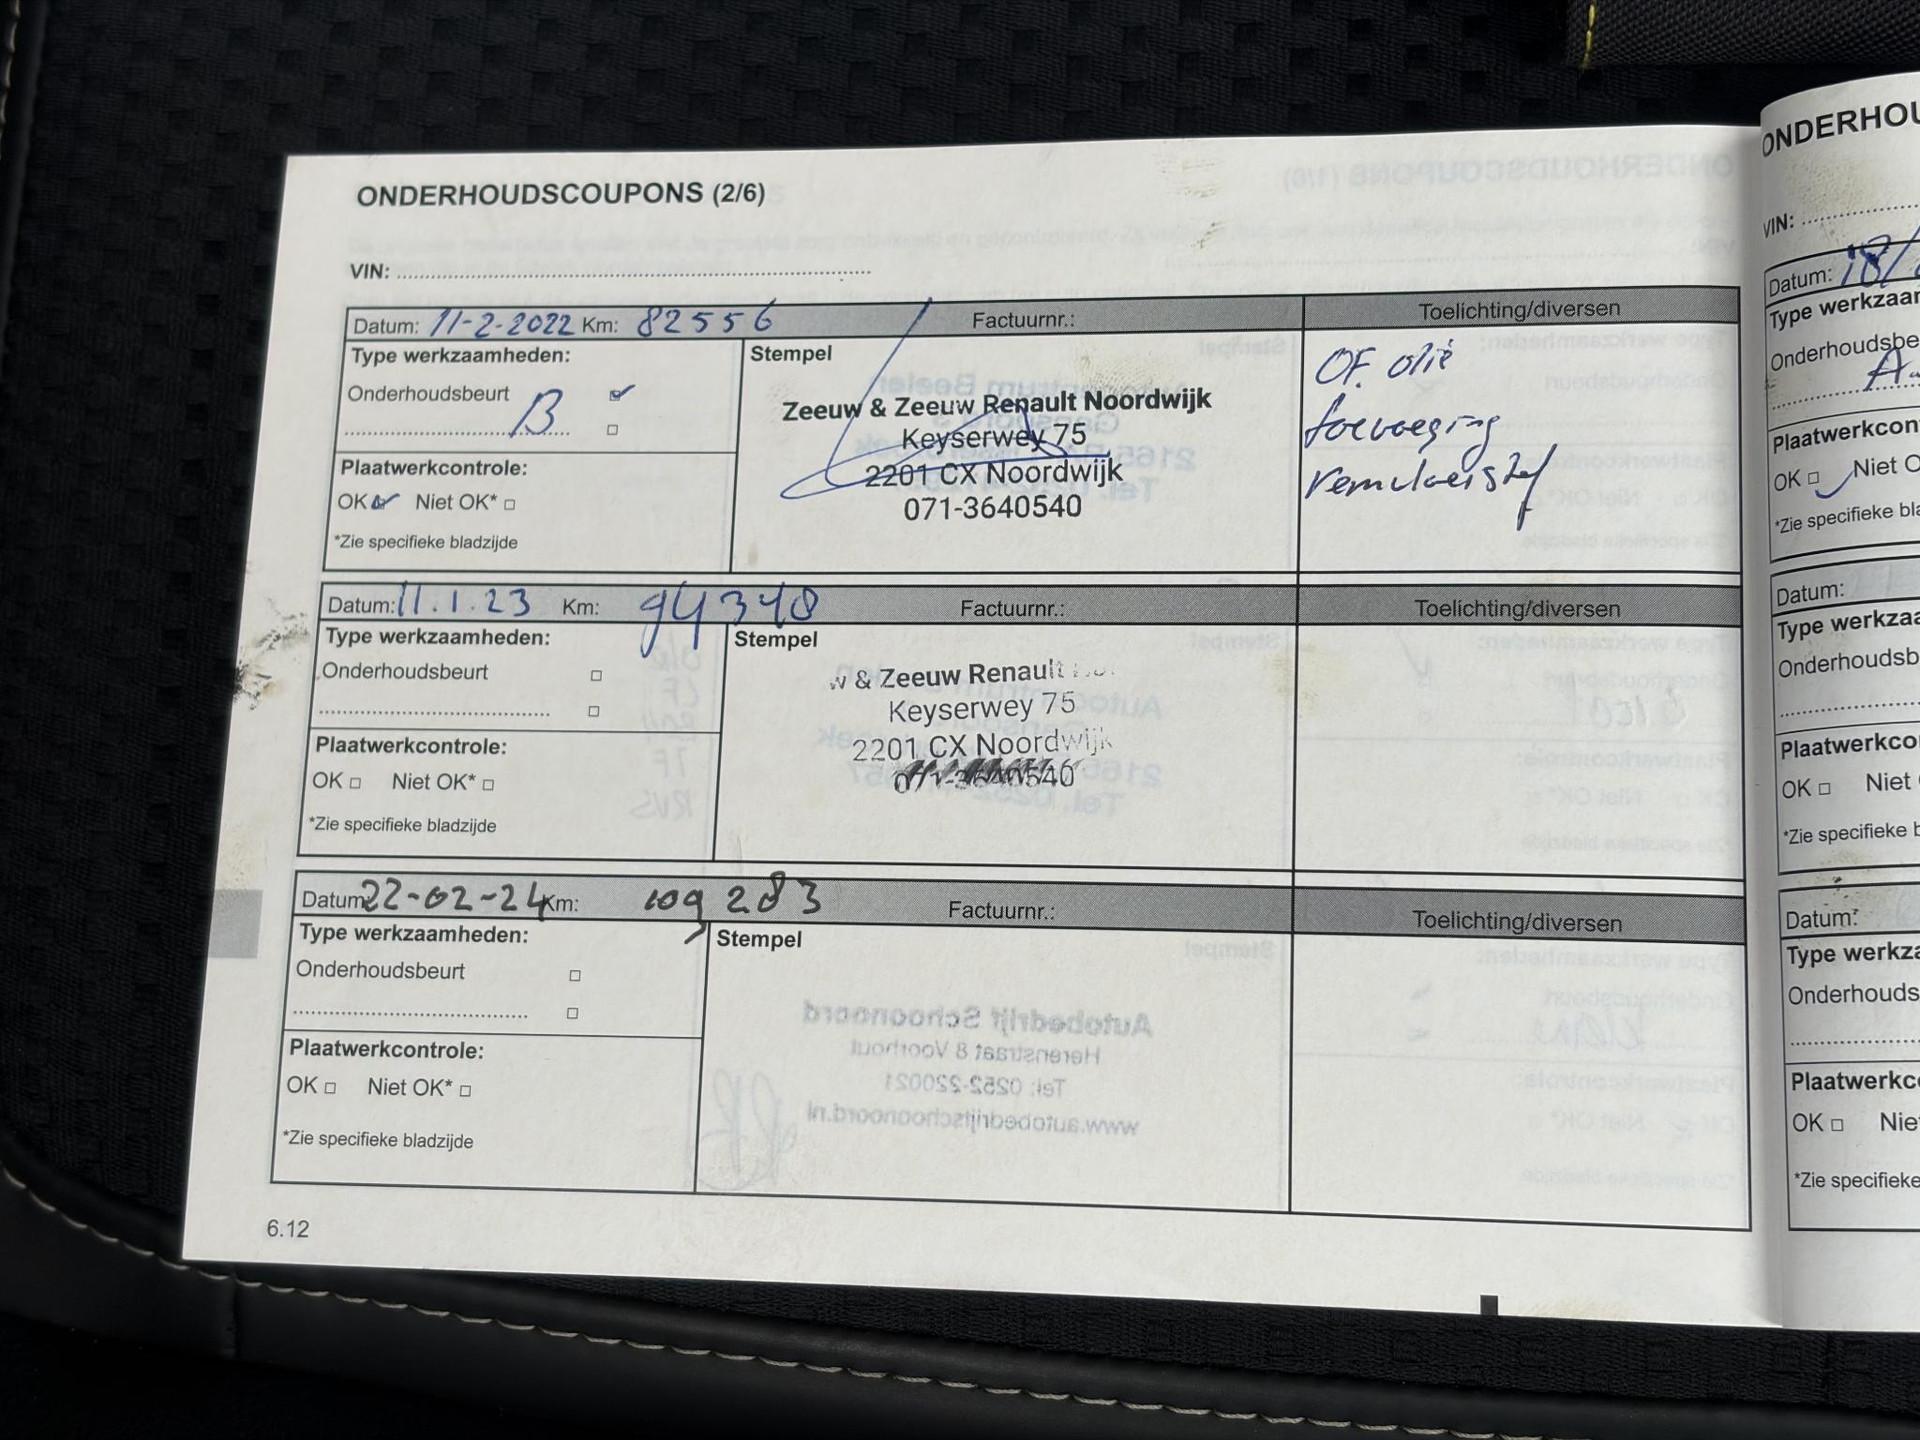 ONDERHOUDSCOUPONS (2/6)
VIN:
Datum: 11-2-2022 Km: 82556 Factuurnr.: Toelichting/diversen
Type werkzaamheden:
Onderhoudsbeurt
B
Plaatwerkcontrole:
OK Niet OK*
*Zie specifieke bladzijde
Stempel
Zeeuw & Zeeuw Renault Noordwijk
Keyserwey 75
2201 CX Noordwijk
071-3640540
OF. olie
toevoeging
remvloeistof
Datum: 11.1.23 Km: 94348 Factuurnr.: Toelichting/diversen
Type werkzaamheden:
Onderhoudsbeurt
Plaatwerkcontrole:
OK Niet OK*
*Zie specifieke bladzijde
Stempel
w & Zeeuw Renault
Keyserwey 75
2201 CX Noordwijk
071-3640540
Datum 22-02-24 Km: 109283 Factuurnr.: Toelichting/diversen
Type werkzaamheden:
Onderhoudsbeurt
Plaatwerkcontrole:
OK Niet OK*
*Zie specifieke bladzijde
Stempel
6.12
ONDERHOU
VIN:
Datum: 18/
Type werkzaam
Onderhoudsbe
A
Plaatwerkcon
OK Niet O
*Zie specifieke bla
Datum:
Type werkzaa
Onderhoudsb
Plaatwerkco
OK Niet
*Zie specifieke b
Datum:
Type werkza
Onderhouds
Plaatwerkc
OK Nie
*Zie specifieke